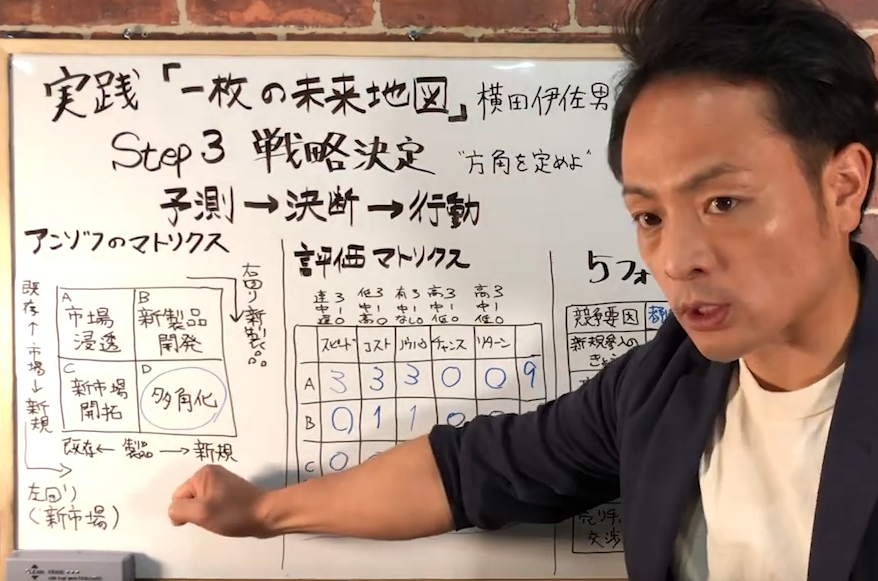 実践「一枚の未来地図」横田伊佐男
Step 3 戦略決定 "方角を定めよ"
予測→決断→行動
アンゾフのマトリクス
既存↑市場↓新規
A 市場浸透
B 新製品開発
C 新市場開拓
D 多角化
既存← 製品 →新規
右回り 新製品
左回り
(新市場)
評価マトリクス
速3 中1 遅0
低3 中1 高0
有3 中1 なし0
高3 中1 低0
高3 中1 低0
スピード コスト ノウハウ チャンス リターン
A 3 3 3 0 0 9
B 0 1 1 0
C 0
5フォ
競争要因
新規参入の
交渉